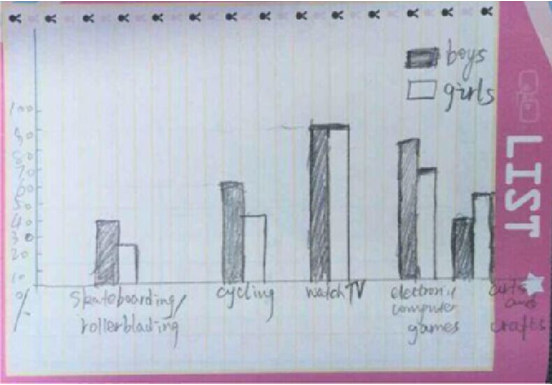 boys
girls
LIST
100
90
80
70
60
50
40
30
20
10
%
skateboarding/
rollerblading
cycling
watch TV
electronic
computer
games
arts
and
crafts